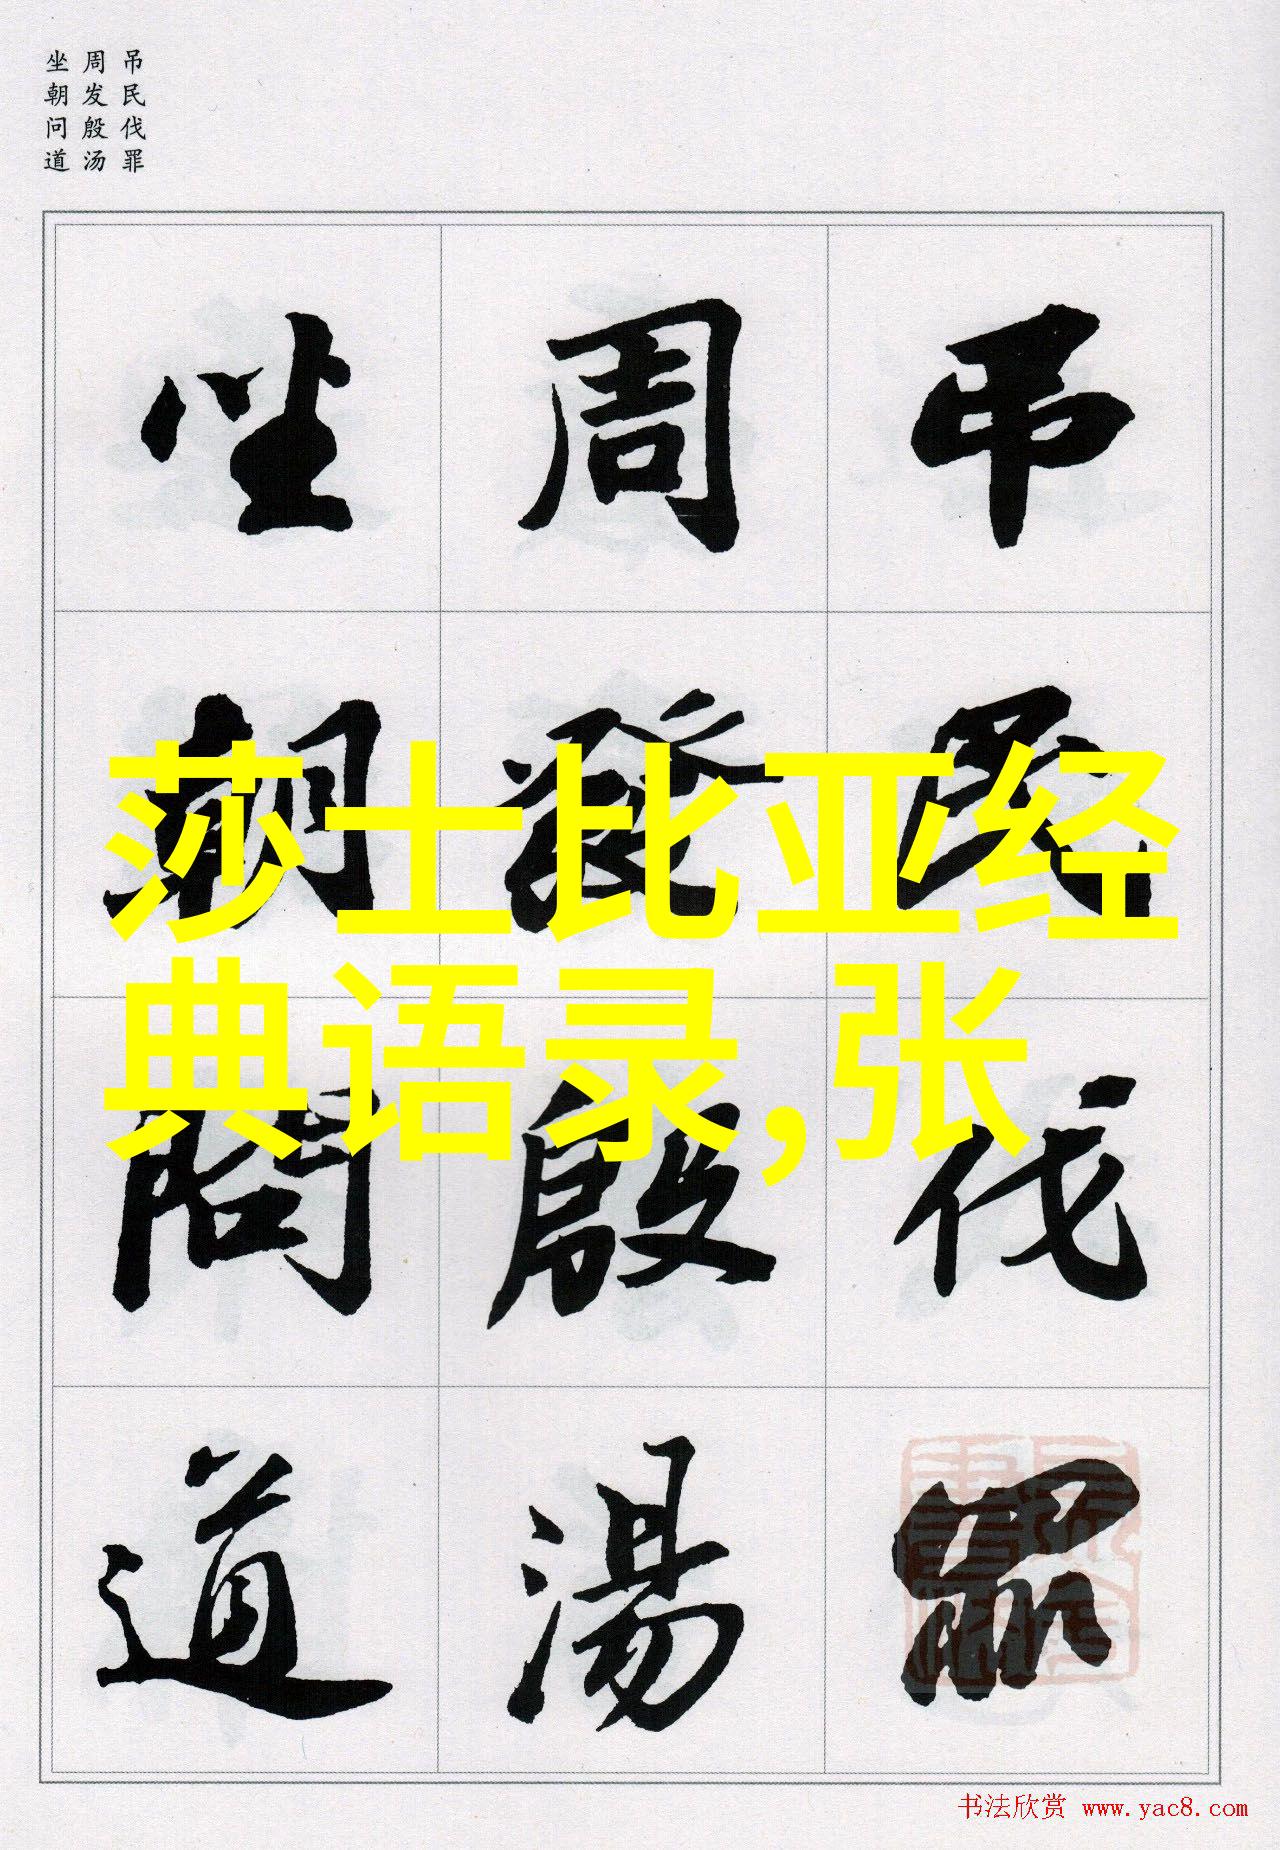 吊民伐罪
周发殷汤
坐朝问道
吊民伐罪
周發殷湯
坐朝問道
莎士比亚经
典语录,张
书法欣赏 www.yac8.com